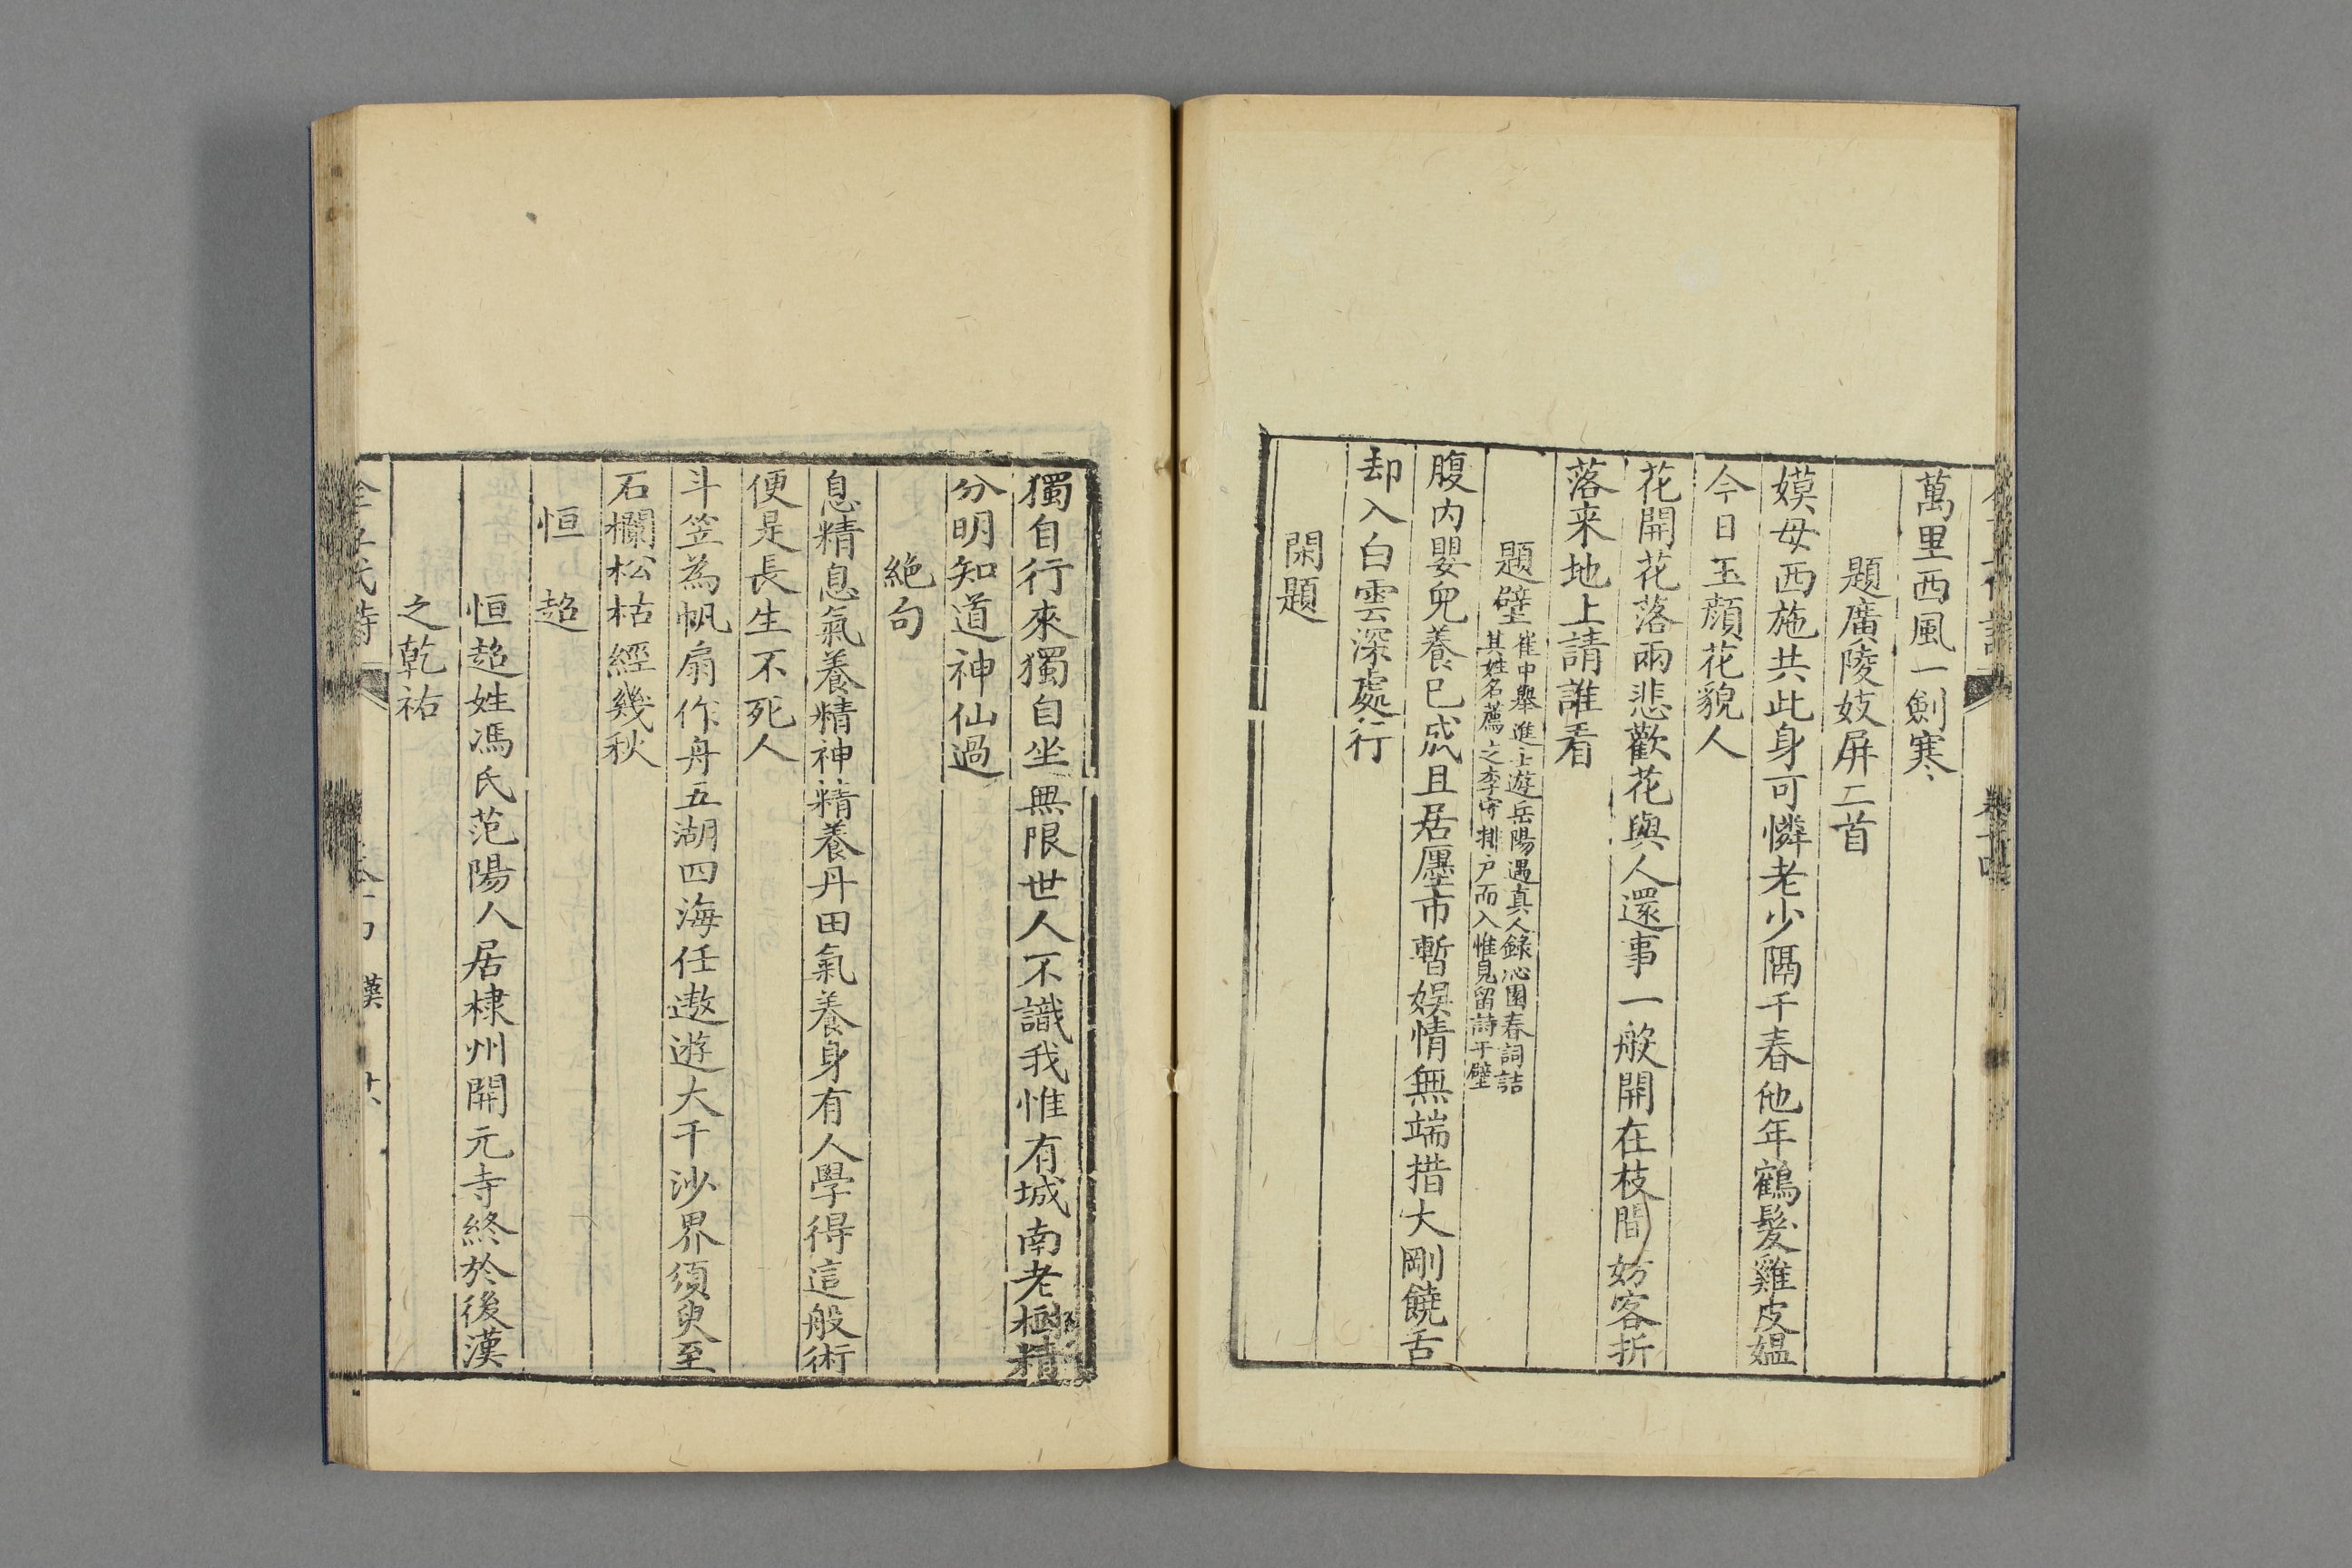 萬里西風一劍寒
題廣陵妓屏二首
嫫母西施共此身可憐老少隔千春他年鶴髮雞皮媼
今日玉顔花貌人
花開花落兩悲歡花與人還事一般開在枝間妨客折
落来地上請誰看
題壁
崔中舉進士遊岳陽遇真人錄沁園春詞詰
其姓名薦之李守排户而入惟見留詩于壁
腹内嬰児養已成且居㕓市暫娱情無端措大剛饒舌
却入白雲深處行
閑題
獨自行來獨自坐無限世人不識我惟有城南老樹精
分明知道神仙過
絶句
息精息氣養精神精養丹田氣養身有人學得這般術
便是長生不死人
斗笠為帆扇作舟五湖四海任遨遊大千沙界須臾至
石欄松枯經幾秋
恒超
恒超姓馮氏范陽人居棣州開元寺終於後漢
之乾祐